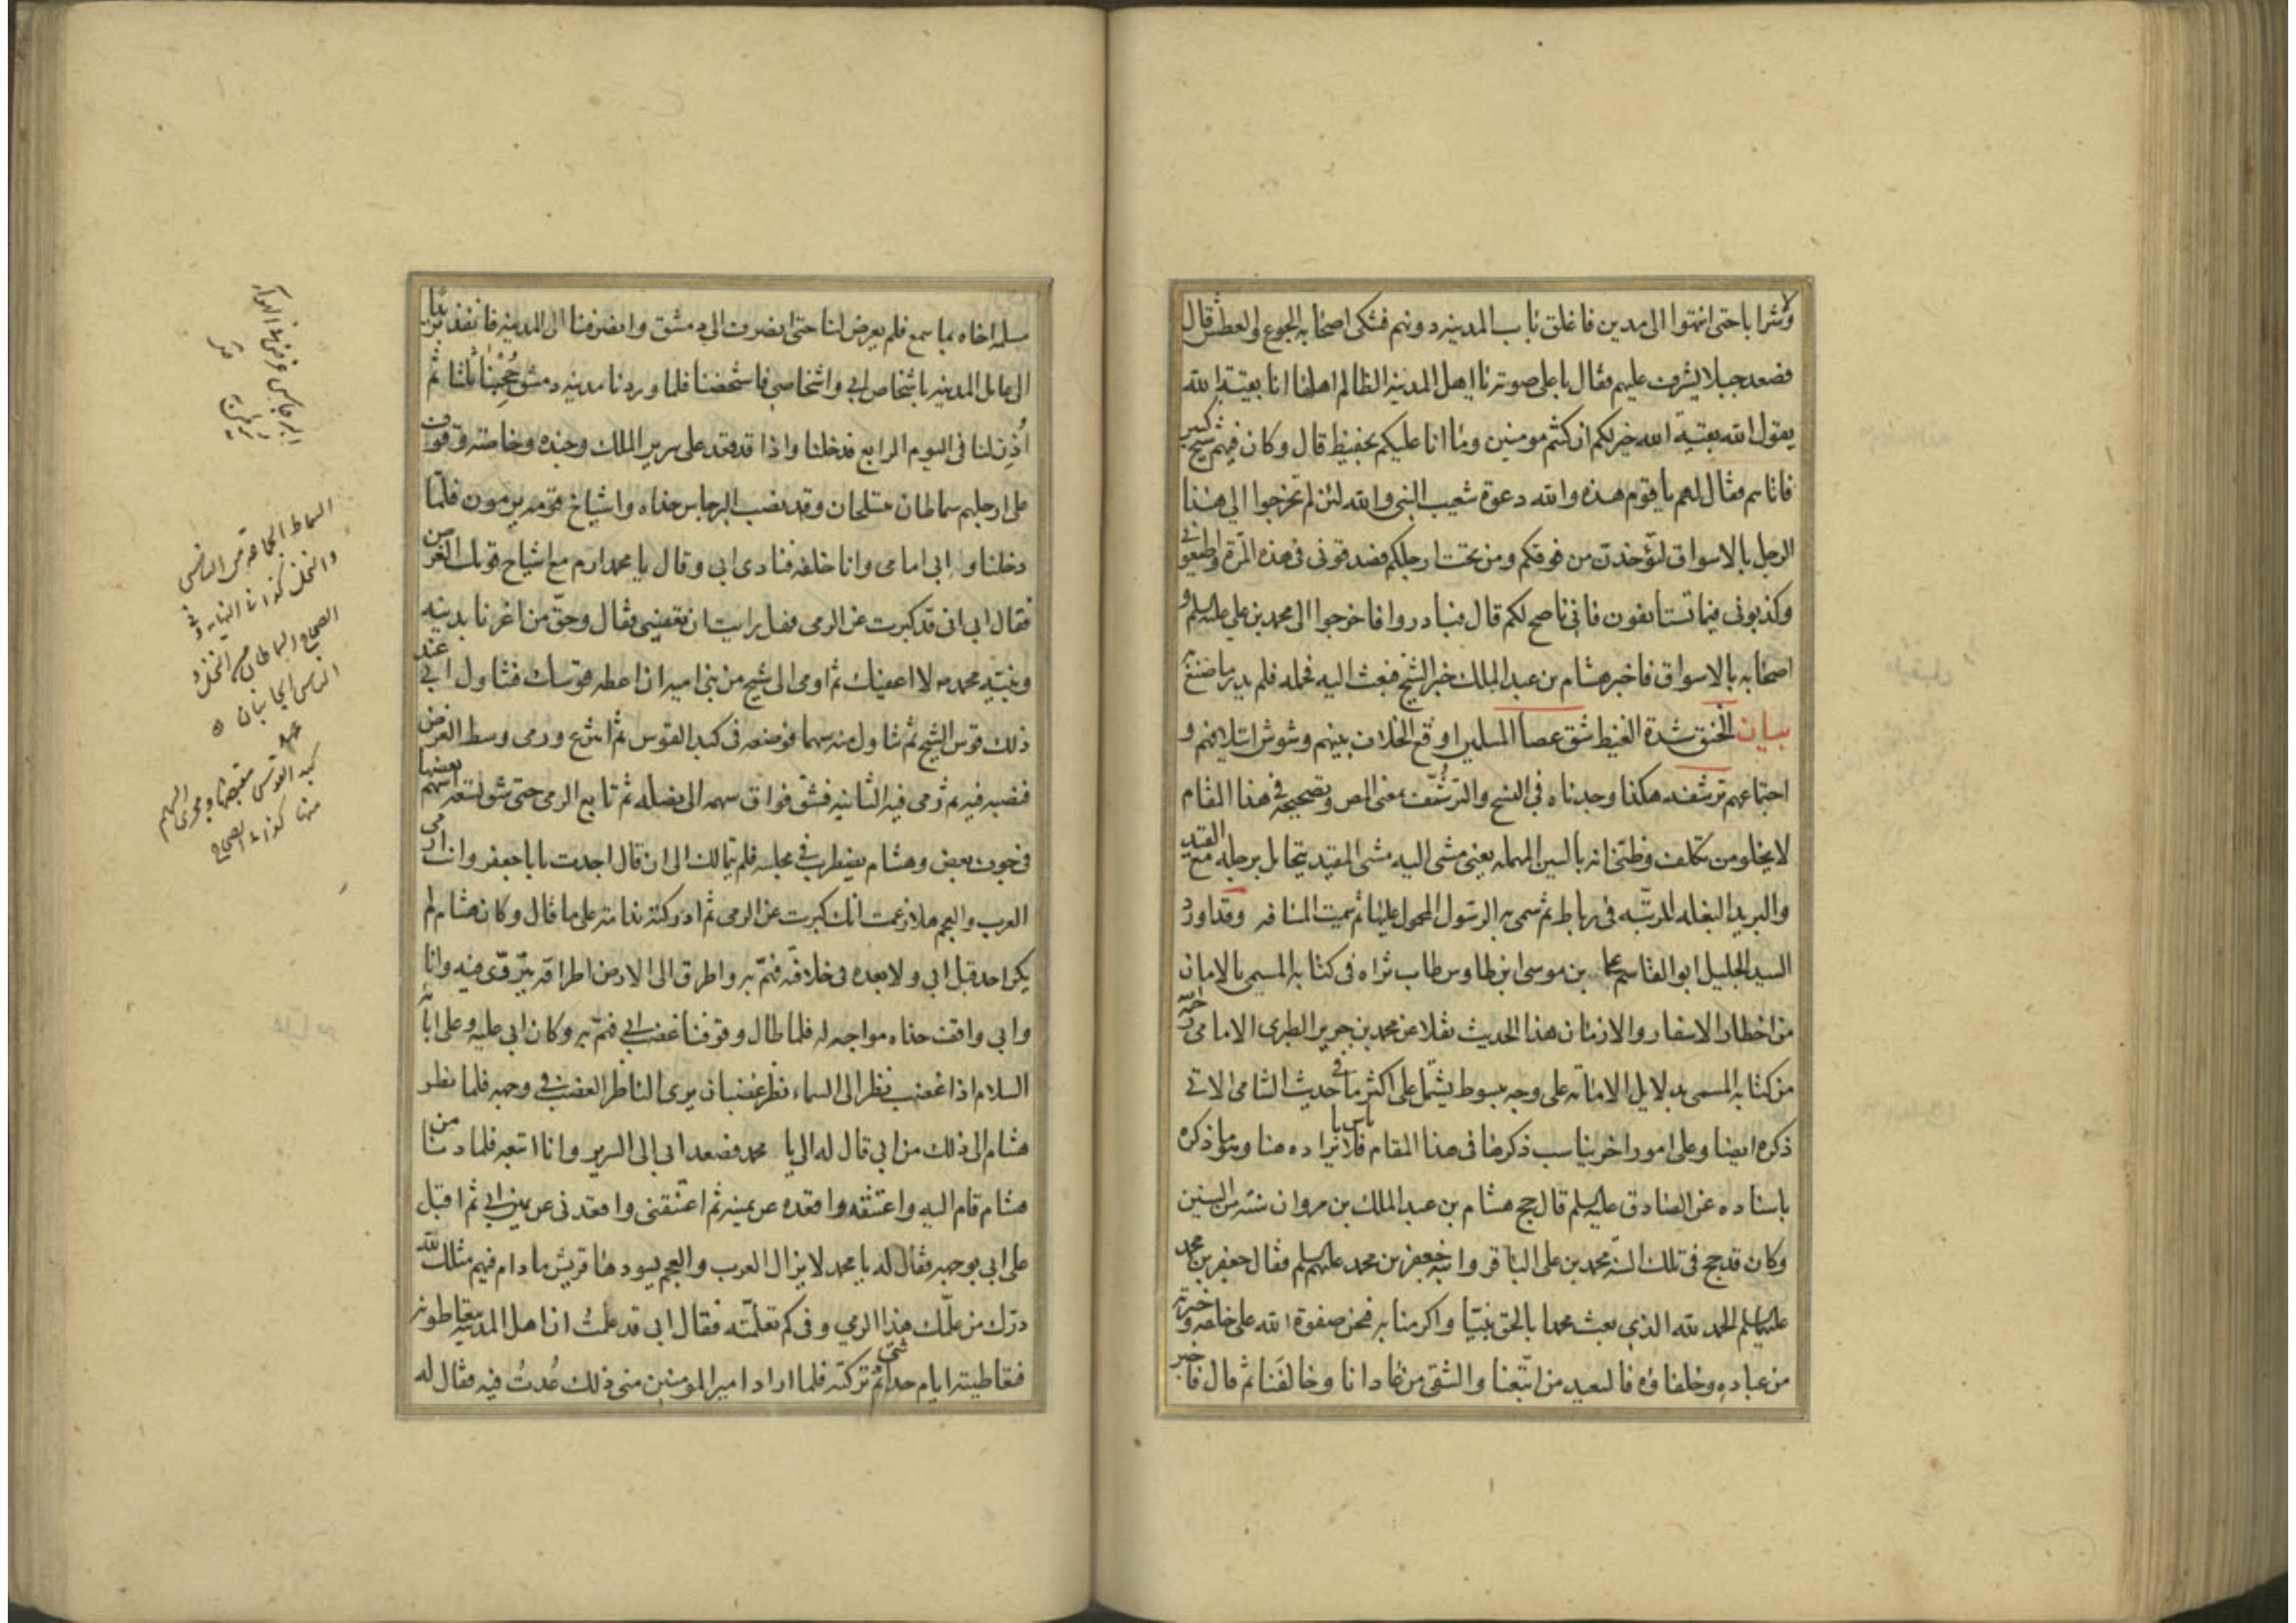 ولا شرابا حتى انتهوا الى مدين فاغلق باب المدينه دونهم فشكى اصحابه الجوع والعطش قال
فصعد جبلا يشرف عليهم فقال باعلى صوته يا اهل المدينه الظالم اهلها انا بقيّة الله
يقول الله بقيّة الله خير لكم ان كنتم مومنين وما انا عليكم بحفيظ قال وكان فيهم شيخ كبير
فاتاهم فقال لهم يا قوم هذه والله دعوة شعيب النبى والله لئن لم تخرجوا الى هذا
الرجل بالاسواق لتؤخذن من فوقكم ومن تحت ارجلكم فصدقونى فى هذه المرّة واطيعونى
وكذبونى فيما تستانفون فانى ناصح لكم قال فبادروا فاخرجوا الى محمد بن على عليه السلم و
اصحابه بالاسواق فاخبر هشام بن عبد الملك خبر الشيخ فبعث اليه فحمله فلم يدر ما صنع به
بيان الخنق شدة الغيظ شق عصا المسلمين اوقع الخلاف بينهم وشوش ايتلافهم و
اجتماعهم ترشفه هكذا وجدناه فى النسخ والترشّف بمعنى المص وتصحيحه فى هذا المقام
لا يخلو من تكلف وظنى انه بالسين المهمله يعنى مشى اليه مشى المقيد يتحامل برجله مع القيد
والبريد البغله المرتّبه فى رباط ثم سمى به الرسول المحمول عليها ثم سميت المسافه وقد اورد
السيد الجليل ابو القاسم على بن موسى ابن طاوس طاب ثراه فى كتابه المسمى بالامان
من اخطار الاسفار والازمان هذا الحديث نقلا عن محمد بن جرير الطبرى الامامى رحمه الله
من كتابه المسمى بدلايل الامامه على وجه مبسوط يشتمل على اكثر ما فى حديث الشامى الاتى
ذكره ايضا وعلى امور اخر يناسب ذكرها فى هذا المقام فلا باس بايراده هنا وهو ما ذكره
باسناده عن الصادق عليه السلم قال حج هشام بن عبد الملك بن مروان سنه من السنين
وكان قد حج فى تلك السنه محمد بن على الباقر وابنه جعفر بن محمد عليهم السلم فقال جعفر بن محمد
عليهما السلم الحمد لله الذى بعث محمدا بالحق نبيّا واكرمنا به فنحن صفوة الله على خلقه وخيرته
من عباده وخلفاؤه فالسعيد من اتّبعنا والشقى من عادانا وخالفنا ثم قال فاخبر
مسلمه اخاه بما سمع فلم يعرض لنا حتى انصرف الى دمشق وانصرفنا الى المدينه فانفذ بريدا
الى عامل المدينه باشخاص ابى واشخاصى فاشخصنا فلما وردنا مدينه دمشق حُجِبنا ثلثا ثم
اُذِن لنا فى اليوم الرابع فدخلنا واذا قد قعد على سرير الملك وجنده وخاصته وقوف
على ارجلهم سماطان متسلحان وقد نصب البرجاس حذاه واشياخ قومه يرمون فلمّا
دخلنا وابى امامى وانا خلفه فنادى ابى وقال يا محمد ارم مع اشياخ قومك الغرض
فقال ابى انى قد كبرت عن الرمى فهل رايت ان تعفينى فقال وحقّ من اعزنا بدينه
ونبيّه محمد ص لا اعفيك ثم اومى الى شيخ من بنى اميه ان اعطه قوسك فتناول ابى عند
ذلك قوس الشيخ ثم تناول منه سهما فوضعه فى كبد القوس ثم انتزع ورمى وسط الغرض
فنصبه فيه ثم رمى فيه الثانيه فشق فواق سهمه الى نصله ثم تابع الرمى حتى شق تسعه اسهم بعضها
فى جوف بعض وهشام يضطرب فى مجلسه فلم يتمالك الى ان قال اجدت يا ابا جعفر وانت ارمى
العرب والعجم هلا زعمت انك كبرت عن الرمى ثم ادركته ندامته على ما قال وكان هشام لم
يكن احد قبل ابى ولا بعده فى خلافته فهمّ به واطرق الى الارض اطراقه يتروّى فيه وانا
وابى واقف حذاه مواجهه له فلما طال وقوفنا غضب ابى فهمّ به وكان ابى عليه وعلى ابائه
السلام اذا غضب نظر الى السماء نظر غضبان يرى الناظر الغضب فى وجهه فلما نظر
هشام الى ذلك من ابى قال له الى يا محمد فصعد ابى الى السرير وانا اتبعه فلما دنا من
هشام قام اليه واعتنقه واقعده عن يمينه ثم اعتنقنى واقعدنى عن يمين ابى ثم اقبل
على ابى بوجهه فقال له يا محمد لا يزال العرب والعجم يسودها قريش ما دام فيهم مثلك لله
درّك من علّمك هذا الرمى وفى كم تعلّمته فقال ابى قد علمتُ ان اهل المدينه يتعاطونه
فتعاطيته ايام حداثتى ثم تركته فلما اراد امير المومنين منى ذلك عُدتُ فيه فقال له
البرجاس غرض فى الهواء
السماط الجماعه من الناس
والنخل كذا فى النهايه وفى
الصحاح السماطان من النخل و
الناس الجانبان
كبد القوس مقبضها ومجرى السهم
منها كذا فى الصحاح